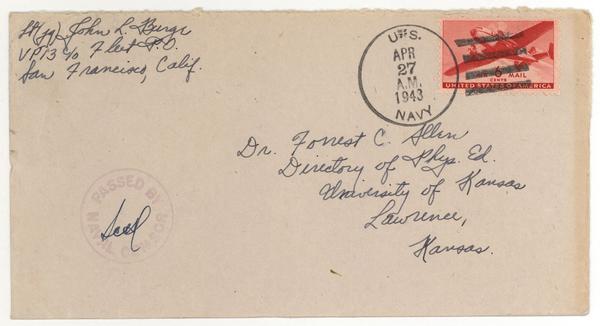 Lt(jg) John L. Burge
VP13 c/o Fleet P.O.
San Francisco, Calif.
U.S.
APR
27
A.M.
1943
NAVY
6
CENTS
MAIL
UNITED STATES OF AMERICA
Dr. Forrest C. Allen
Directory of Phys. Ed.
University of Kansas
Lawrence,
Kansas.
PASSED BY
NAVAL CENSOR